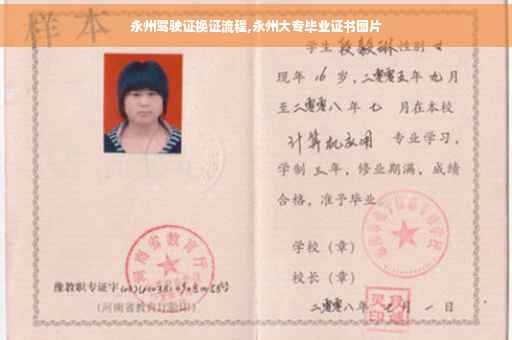 永州驾驶证换证流程,永州大专毕业证书图片
样本
学生段毅琳性别女
现年16岁,二零零五年九月
至二零零八年七 月在本校
计算机应用 专业学习,
学制三年,修业期满,成绩
合格,准予毕业
学校(章)
校长(章)
二零零八年七月一日
河南省教育厅
豫教职专证字
(河南省教育厅验印)